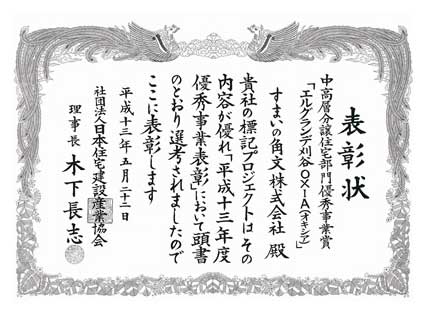 表彰状
中高層分譲住宅部門優秀事業賞
「エルグランデ刈谷OXIA(オキシア)」
すまいの角文株式会社 殿
貴社の標記プロジェクトは その
内容が優れ「平成十三年度
優秀事業表彰」において頭書
のとおり選考されましたので
ここに表彰します
平成十三年五月二十二日
社団法人日本住宅建設産業協会
理事長 木下長志